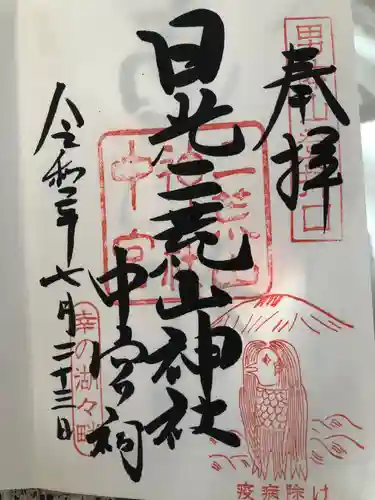 奉拝
日光二荒山神社
中宮祠
令和二年七月二十三日
幸の湖々畔
疫病除け